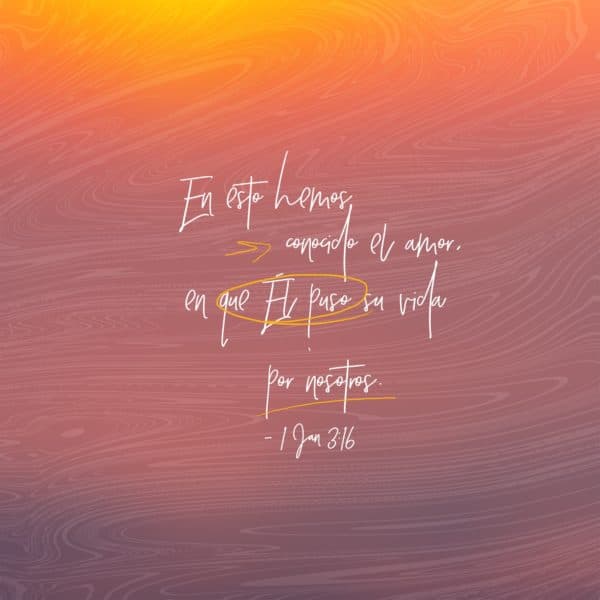 En esto hemos
conocido el amor,
en que Él puso su vida
por nosotros.
- 1 Jan 3:16